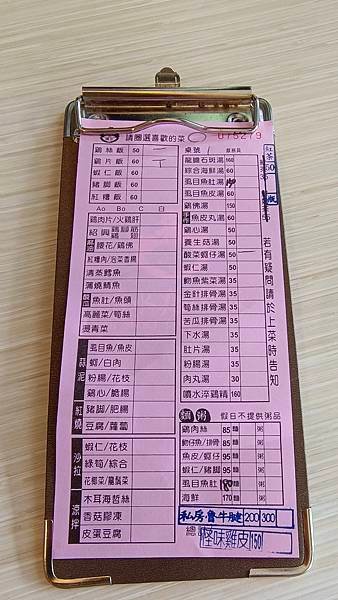 請圈選喜歡的菜
075279
鷄絲飯 50
鷄片飯 60
蝦仁飯 60
豬腳飯 60
紅糟飯 60
Ao Bo C 白
鷄肉片/火鷄肝
紹興
腰花/鷄佛
紅糟肉/泡菜香腸
清蒸鱈魚
蒲燒鯖魚
魚肚/魚頭
高麗菜/筍絲
燙青菜
蒜泥
虱目魚/魚皮
蝦/白肉
粉腸/花枝
鷄心/脆腸
紅燒
豬腳/肥腸
豆腐/蘿蔔
沙拉
蝦仁/花枝
綠筍/綜合
花椰菜/龍鬚菜
涼拌
木耳海哲絲
香菇膠凍
皮蛋豆腐
桌號
服務員
龍膽石斑湯 160
綜合海鮮湯 60
虱目魚肚湯
虱目魚皮湯 60
鷄佛湯 150
魚皮丸湯 60
鷄心湯 50
養生菇湯 50
酸菜蚵仔湯 50
蝦仁湯 50
魩魚紫菜湯 35
金針排骨湯 35
筍絲排骨湯 35
苦瓜排骨湯 35
下水湯 35
肚片湯 35
粉腸湯 35
肉丸湯 30
噴水淬鷄精 160
紅茶 50
若有疑問請於上菜時告知
麵 粥 假日不提供粥品
鷄肉絲 85 麵 粥
魩仔魚/排骨 85 麵 粥
魚皮/蚵仔 95 麵 粥
蝦仁/豬腳 95 麵 粥
虱目魚肚 180 麵 粥
海鮮 170 麵 粥
私房滷牛腱 200 300
總
怪味雞皮 150